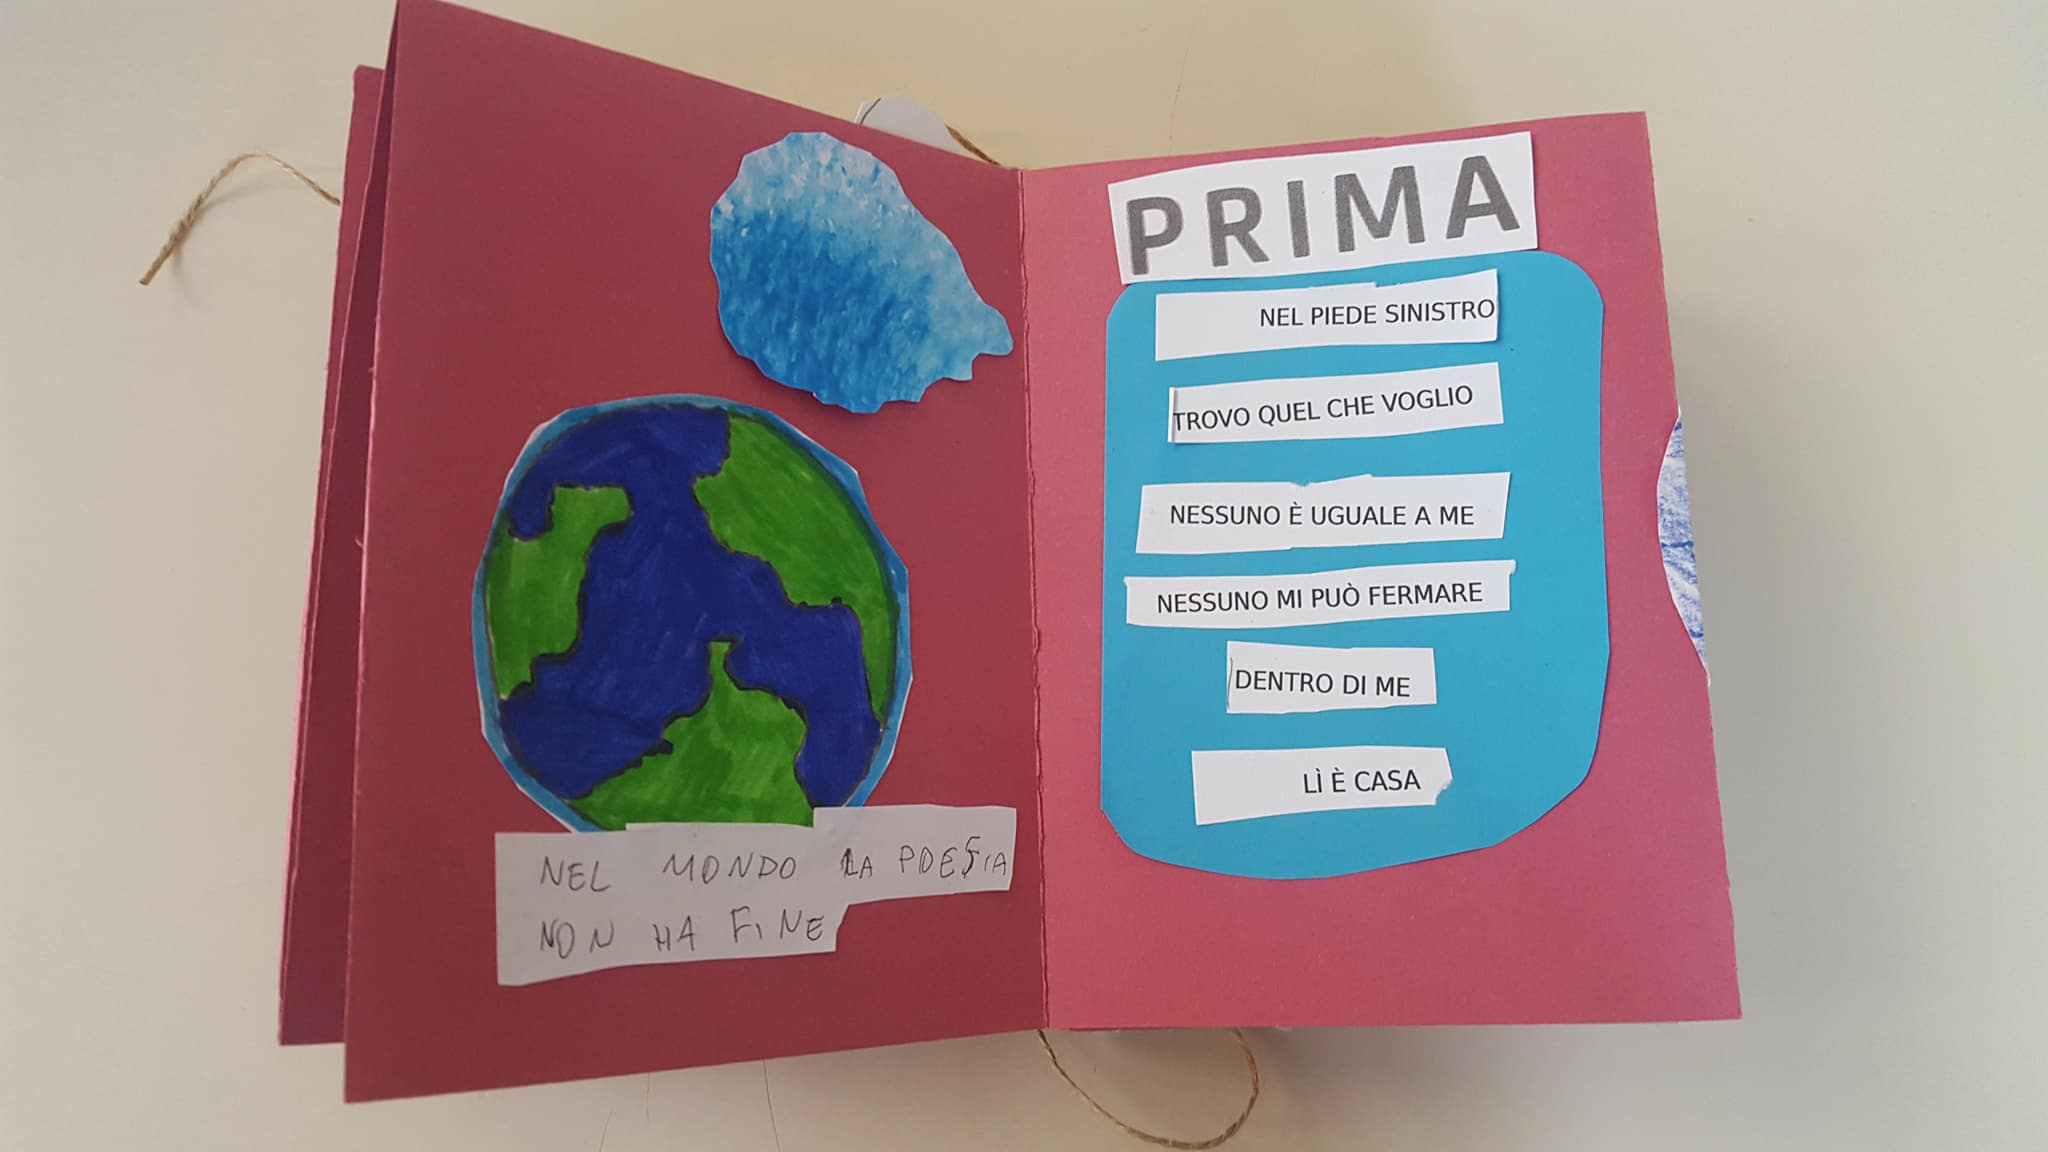 NEL MONDO LA POESIA
NON HA FINE
PRIMA
NEL PIEDE SINISTRO
TROVO QUEL CHE VOGLIO
NESSUNO È UGUALE A ME
NESSUNO MI PUÒ FERMARE
DENTRO DI ME
LÌ È CASA